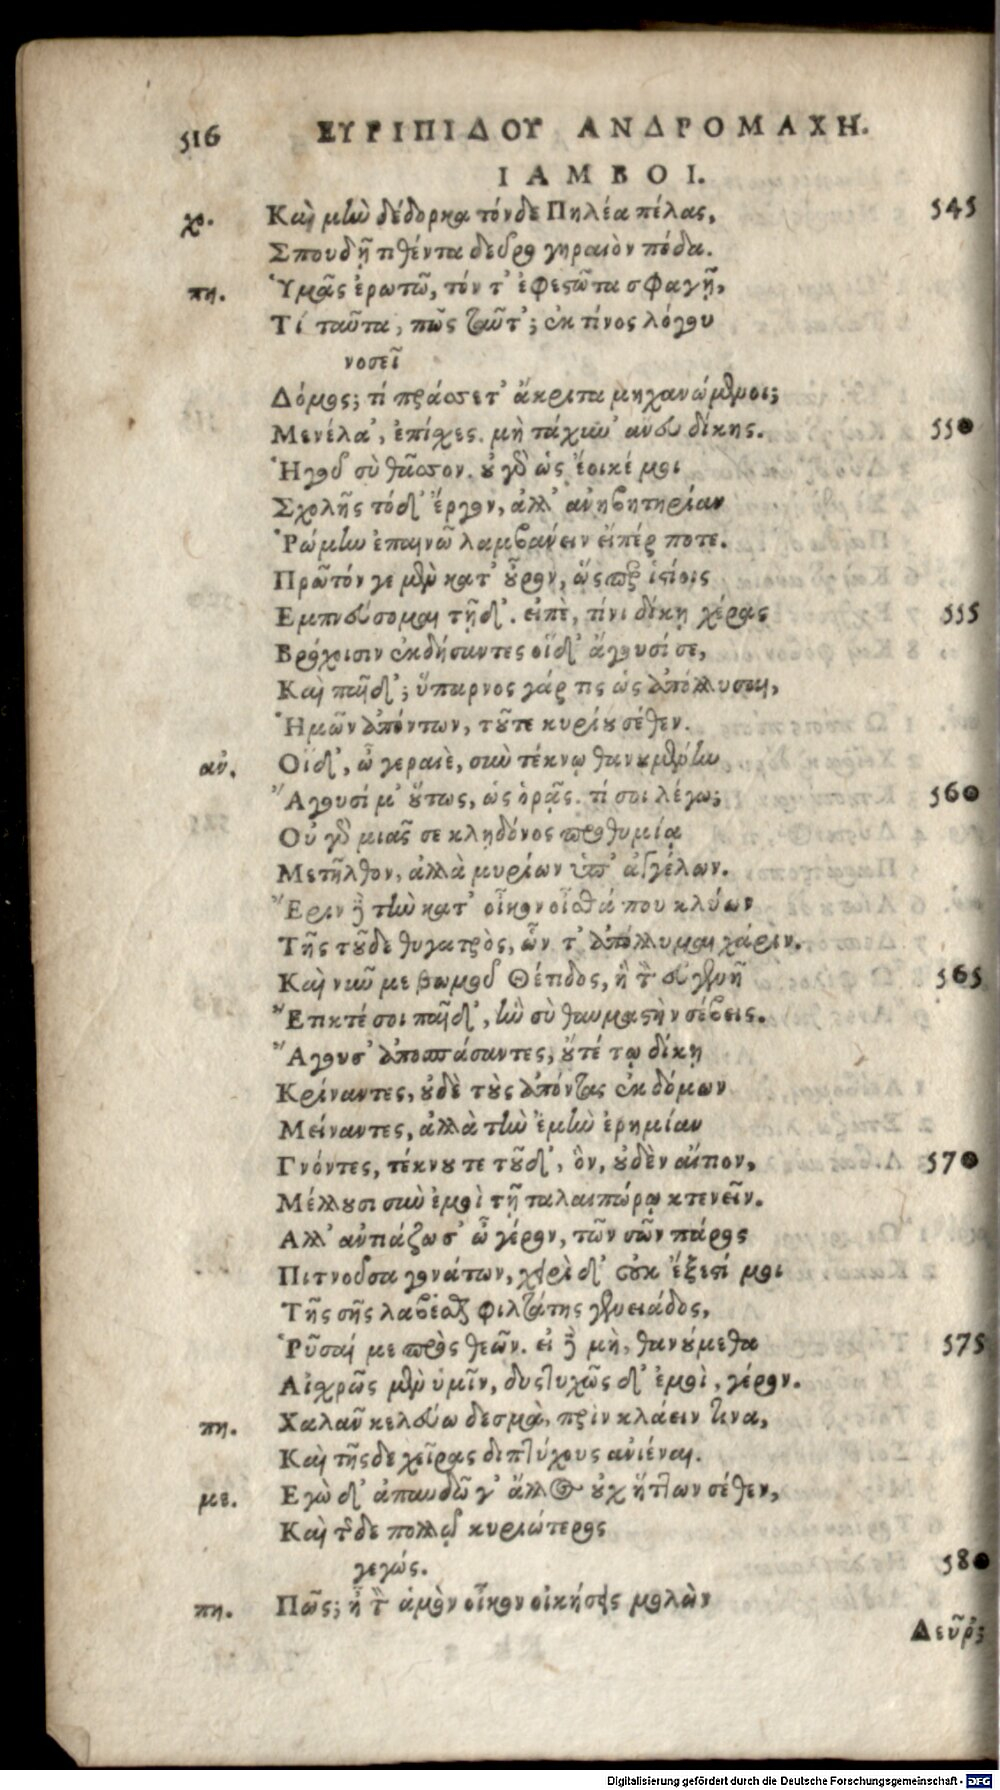 516 ΕΥΡΙΠΙΔΟΥ ΑΝΔΡΟΜΑΧΗ.
ΙΑΜΒΟΙ.
χο. Καὶ μὴν δέδορκα τόνδε Πηλέα πέλας, 545
Σπουδῇ τιθέντα δεῦρο γηραιὸν πόδα.
πη. Ὑμᾶς ἐρωτῶ, τόν τ' ἐφεστῶτα σφαγῇ,
Τί ταῦτα, πῶς ταῦτ'; ἐκ τίνος λόγου
νοσεῖ
Δόμος; τί πράσσετ' ἄκριτα μηχανώμενοι;
Μενέλα', ἐπίσχες. μὴ τάχυν' ἄνευ δίκης. 550
Ἡγοῦ σὺ θᾶσσον. οὐ γὰρ ὡς ἔοικέ μοι
Σχολῆς τόδ' ἔργον, ἀλλ' ἀνηβητηρίαν
Ῥώμην ἐπαινῶ λαμβάνειν εἴπέρ ποτε.
Πρῶτόν γε μὲν κατ' οὖρον, ὥσπερ ἱστίοις
Εμπνεύσομαι τῇδ'. εἰπὲ, τίνι δίκῃ χέρας 555
Βρόχοισιν ἐκδήσαντες οἵδ' ἄγουσί σε,
Καὶ παῖδ'; ὕπαρνος γάρ τις ὡς ἀπόλλυσαι,
Ἡμῶν ἀπόντων, τοῦ τε κυρίου σέθεν.
αν. Οἵδ', ὦ γεραιὲ, σὺν τέκνῳ θανουμένην
Ἄγουσί μ' οὕτως, ὡς ὁρᾷς. τί σοι λέγω; 560
Οὐ γὰρ μιᾶς σε κληδόνος προθυμίᾳ
Μετῆλθον, ἀλλὰ μυρίων ὑπ' ἀγγέλων.
Ἔριν δὲ τὴν κατ' οἶκον οἶσθά που κλύων
Τῆς τοῦδε θυγατρὸς, ὧν τ' ἀπόλλυμαι χάριν.
Καὶ νῦν με βωμοῦ Θέτιδος, ἣ τὸν εὐγενῆ 565
Ἔτικτέ σοι παῖδ', ἣν σὺ θαυμαστὴν σέβεις.
Ἄγουσ' ἀποσπάσαντες, οὔτέ τῳ δίκῃ
Κρίναντες, οὐδὲ τοὺς ἀπόντας ἐκ δόμων
Μείναντες, ἀλλὰ τὴν ἐμὴν ἐρημίαν
Γνόντες, τέκνου τε τοῦδ', ὃν, οὐδὲν αἴτιον, 570
Μέλλουσι σὺν ἐμοὶ τῇ ταλαιπώρῳ κτενεῖν.
Αλλ' ἀντιάζω σ' ὦ γέρον, τῶν σῶν πάρος
Πιτνοῦσα γονάτων, χειρὶ δ' οὐκ ἔξεστί μοι
Τῆς σῆς λαβέσθαι φιλτάτης γενειάδος,
Ῥῦσαί με πρὸς θεῶν. εἰ δὲ μὴ, θανούμεθα 575
Αἰσχρῶς μὲν ὑμῖν, δυστυχῶς δ' ἐμοὶ, γέρον.
πη. Χαλᾶν κελεύω δεσμὰ, πρὶν κλάειν τινα,
Καὶ τῆσδε χεῖρας διπτύχους ἀνιέναι.
με. Εγὼ δ' ἀπαυδῶ γ' ἄλλος οὐχ ἥττων σέθεν,
Καὶ τῆσδε πολλῷ κυριώτερος
γεγώς. 580
πη. Πῶς; ἦ τὸν ἁμὸν οἶκον οἰκήσεις μολὼν
Δεῦρ';
Digitalisierung gefördert durch die Deutsche Forschungsgemeinschaft - DFG